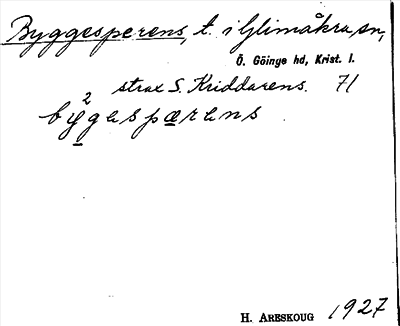 Byggesperens, t. i Glimåkra sn,
Ö. Göinge hd, Krist. l.
strax S. Kriddarens. 71
by²gespærens
H. ARESKOUG 1927